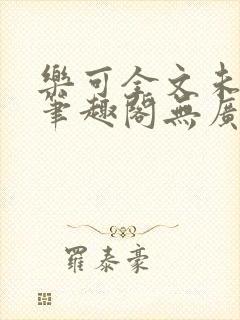 樂可全文未
筆趣閣無廣
羅泰豪